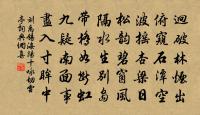 迴破林煙出
俯窺石潭空
波搖杏梁日
松韻碧窗風
隔水生別島
帶橋如斷虹
九疑南面事
盡入寸眸中
劉禹錫海陽十詠切雲
亭詞典網集